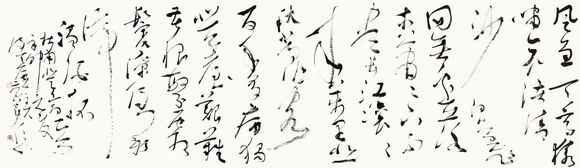 風急天高猿
嘯哀渚清
沙白鳥飛
回無邊落
木蕭蕭下不
盡長江滾滾
來萬里悲
秋常作客
百年多病獨
登臺艱難
苦恨繁霜
鬢潦倒新
停
濁酒杯